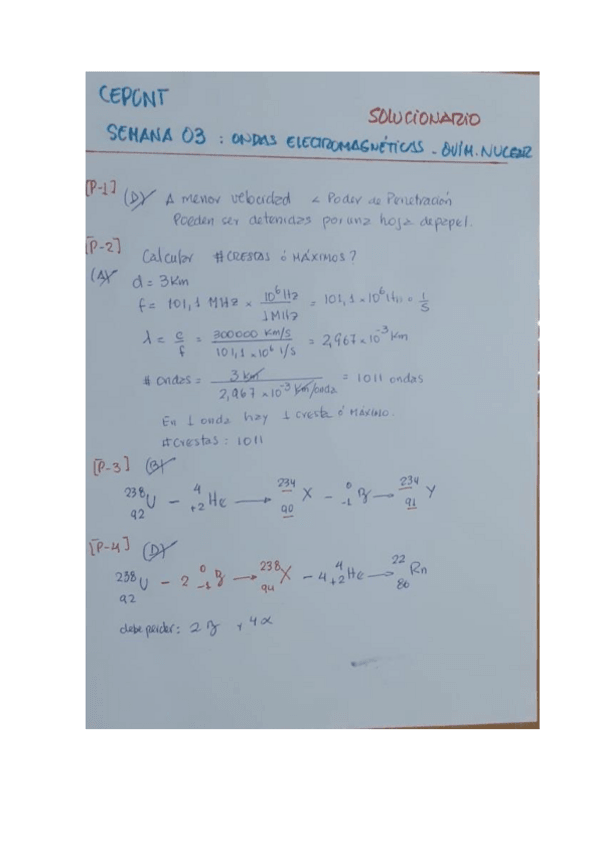 CEPUNT
SOLUCIONARIO
SEMANA 03 : ONDAS ELECTROMAGNÉTICAS - QUÍM. NUCLEAR
[P-1] (D) A menor velocidad < Poder de Penetración
Pueden ser detenidas por una hoja de papel.
[P-2] Calcular # CRESTAS ó MÁXIMOS?
(A) d = 3 Km
f = 101,1 MHz × 10⁶ Hz / 1 MHz = 101,1 × 10⁶ Hz = 1/S
λ = c/f = 300000 Km/s / 101,1 × 10⁶ 1/s = 2,967 × 10⁻³ Km
# ondas = 3 km / 2,967 × 10⁻³ Km/onda = 1011 ondas
En 1 onda hay 1 cresta ó MÁXIMO.
# crestas : 1011
[P-3] (B)
²³⁸₉₂U − ⁴₊₂He → ²³⁴₉₀X − ⁰₋₁β → ²³⁴₉₁Y
[P-4] (D)
²³⁸₉₂U − 2 ⁰₋₁β → ²³⁸₉₄X − 4 ⁴₊₂He → ²²₈₆Rn
debe perder: 2 β y 4α